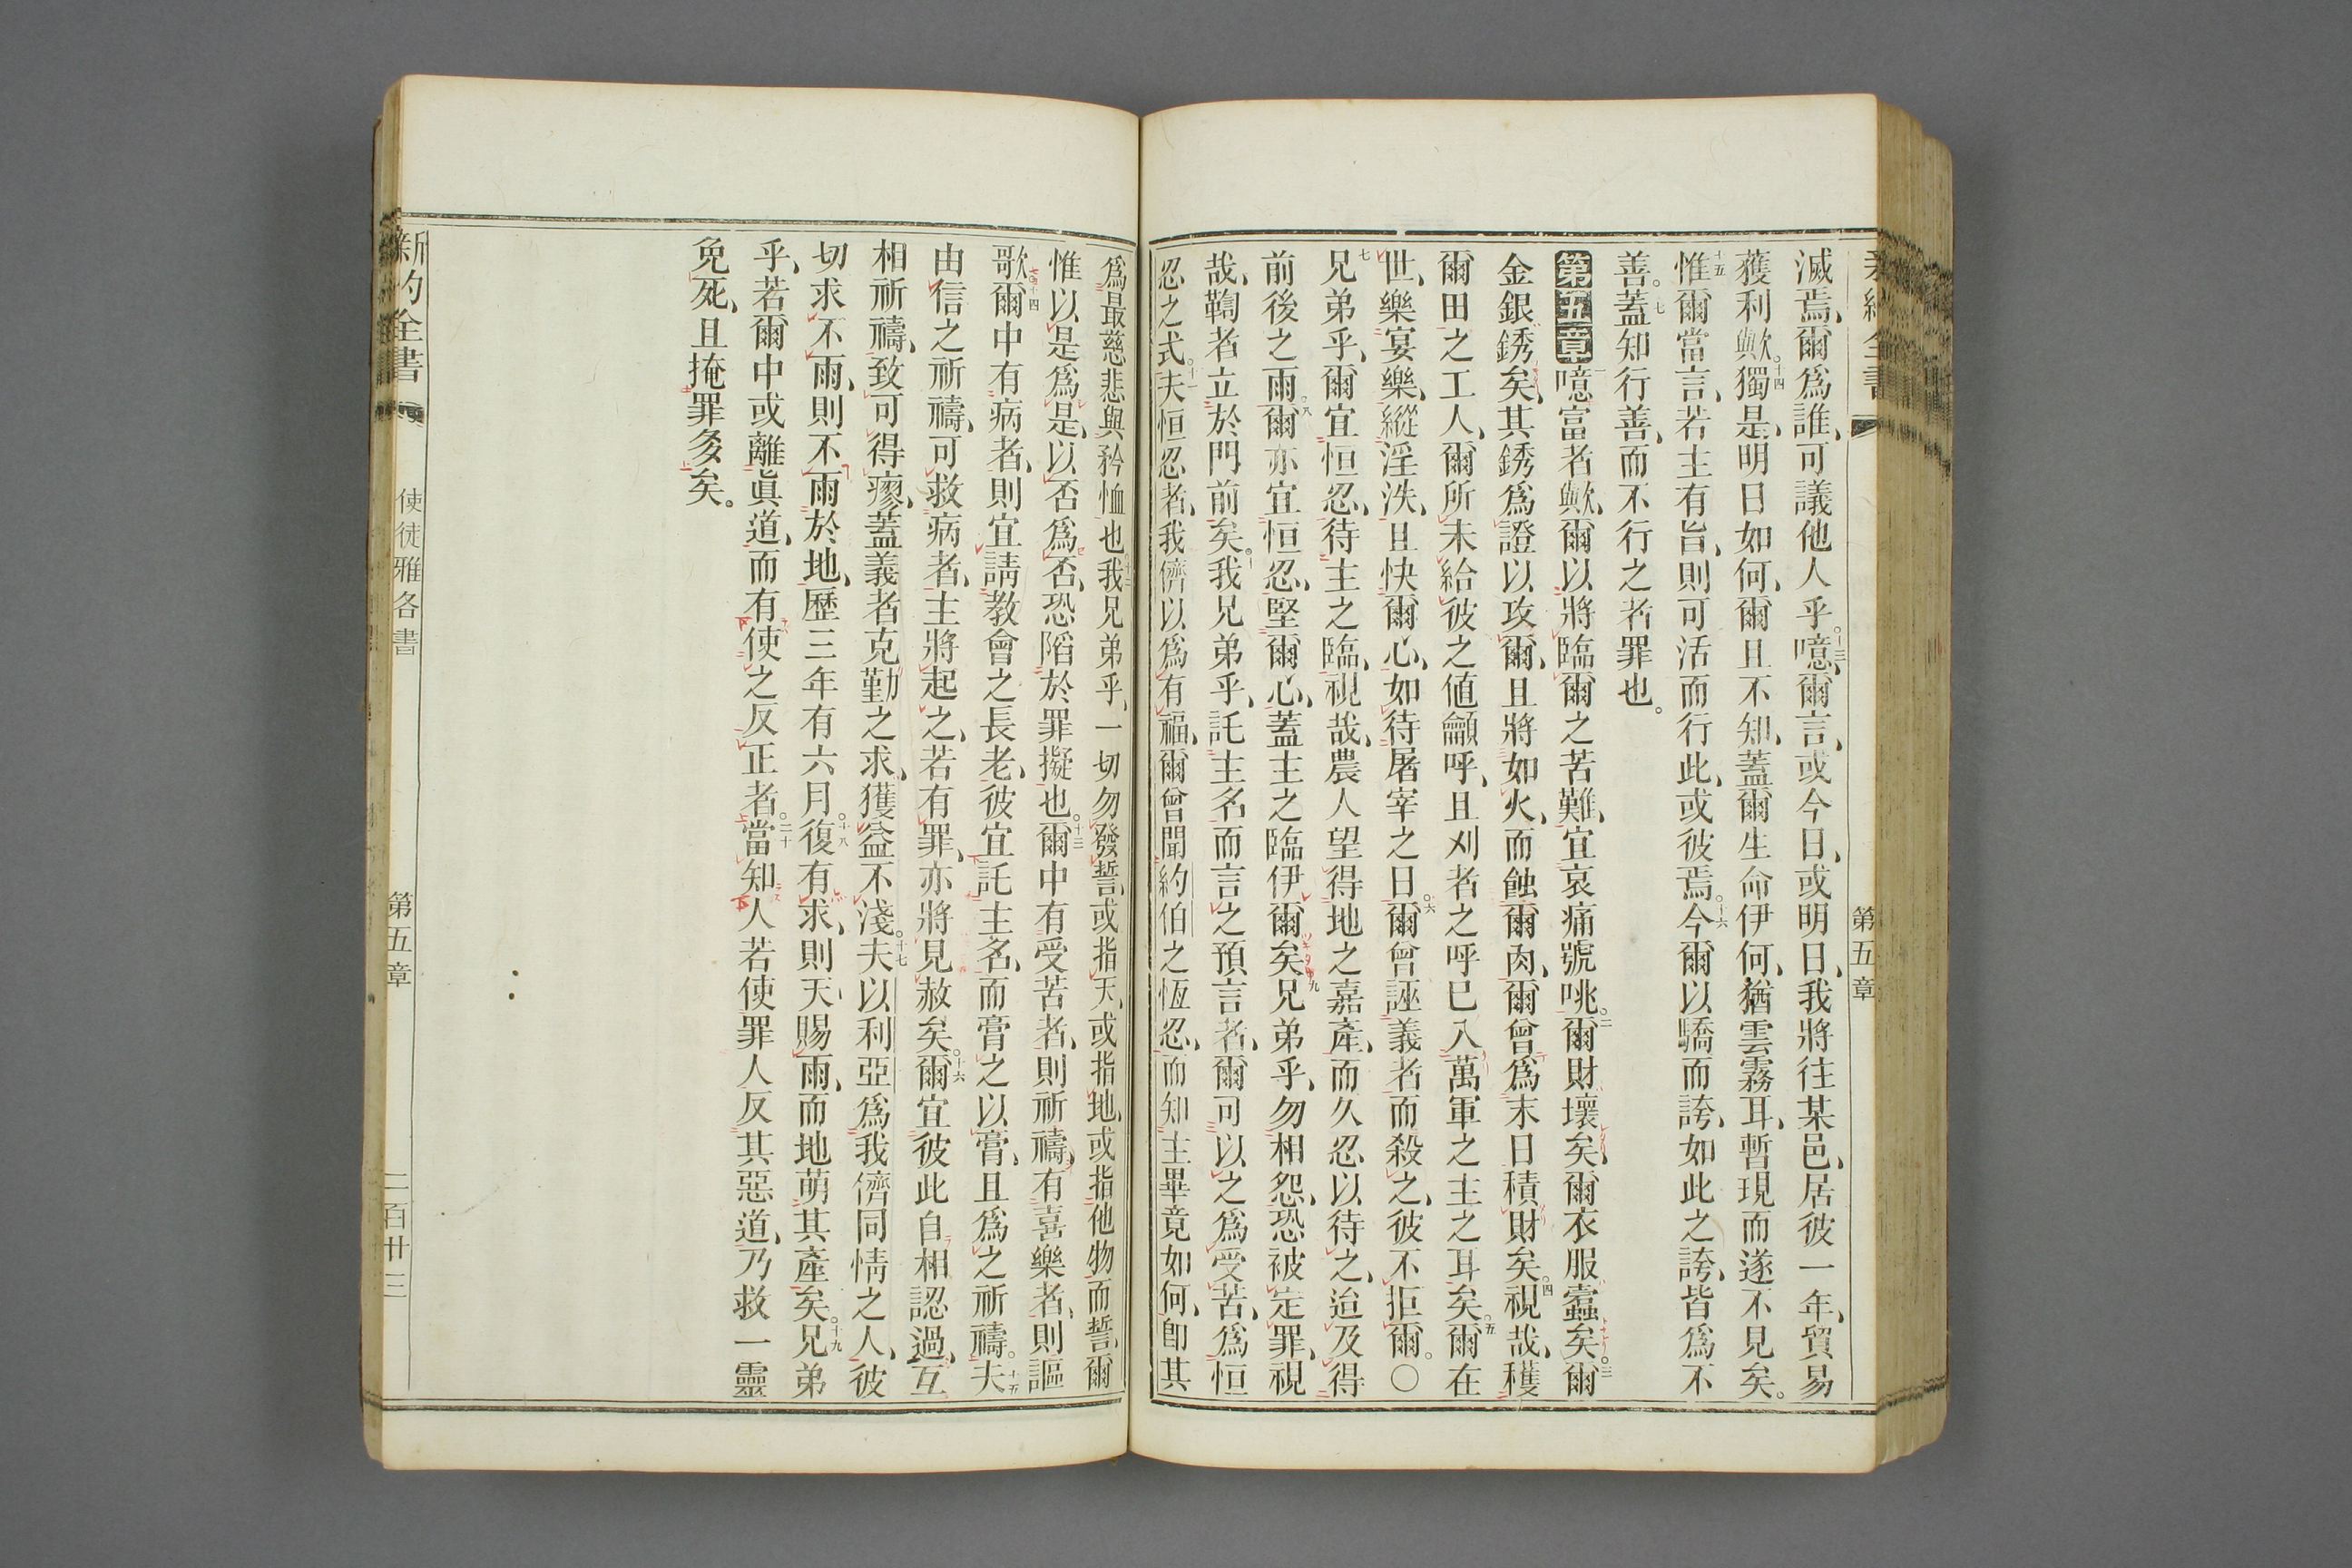 第五章
滅焉、爾爲誰、可議他人乎。十三噫、爾言、或今日、或明日、我將往某邑、居彼一年、貿易
獲利歟。十四獨是、明日如何、爾且不知、蓋爾生命伊何、猶雲霧耳、暫現而遂不見矣。
十五惟爾當言、若主有旨、則可活而行此、或彼焉。十六今爾以驕而誇、如此之誇、皆爲不
善。十七蓋知行善、而不行之者罪也。
第五章一噫富者歟、爾以將臨爾之苦難、宜哀痛號咷。二爾財壞矣、爾衣服蠹矣。三爾
金銀銹矣、其銹爲證以攻爾、且將如火、而蝕爾肉、爾曾爲末日積財矣。四視哉、穫
爾田之工人、爾所未給彼之値龥呼、且刈者之呼已入萬軍之主之耳矣。五爾在
世、樂宴樂、縱淫泆、且快爾心、如待屠宰之日。六爾曾誣義者而殺之、彼不拒爾。〇
七兄弟乎、爾宜恒忍、待主之臨、視哉、農人望得地之嘉產、而久忍以待之、迨及得
前後之雨。八爾亦宜恒忍、堅爾心、蓋主之臨伊爾矣。九兄弟乎、勿相怨、恐被定罪、視
哉、鞫者立於門前矣。十我兄弟乎、託主名而言之預言者、爾可以之爲受苦、爲恒
忍之式。十一夫恒忍者、我儕以爲有福、爾曾聞約伯之恆忍、而知主畢竟如何、卽其
爲最慈悲與矜恤也。十二我兄弟乎、一切勿發誓、或指天、或指地、或指他物而誓、爾
惟以是爲是、以否爲否、恐陷於罪擬也。十三爾中有受苦者、則祈禱、有喜樂者、則謳
歌。十四爾中有病者、則宜請教會之長老、彼宜託主名、而膏之以膏、且爲之祈禱。十五夫
由信之祈禱、可救病者、主將起之、若有罪、亦將見赦矣。十六爾宜彼此自相認過、互
相祈禱、致可得瘳、蓋義者克勤之求、獲益不淺。十七夫以利亞爲我儕同情之人、彼
切求不雨、則不雨於地、歷三年有六月。十八復有求、則天賜雨、而地萌其產矣。十九兄弟
乎、若爾中或離眞道、而有使之反正者。二十當知人若使罪人反其惡道、乃救一靈
免死、且掩罪多矣。
新約全書
使徒雅各書
第五章
二百廿三